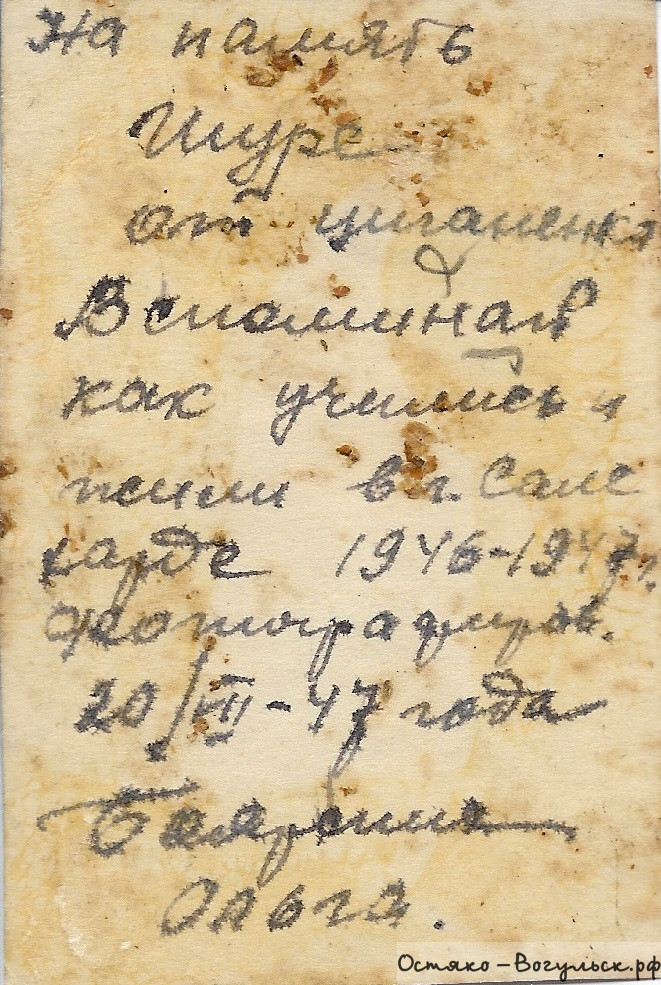 На память
Шуре
от цыганёнка
Вспоминай
как учились и
жили в г. Сале
харде 1946-1947г.
фотографиров.
20/VII-47 года
Ольга.
Остяко-Вогульск.рф